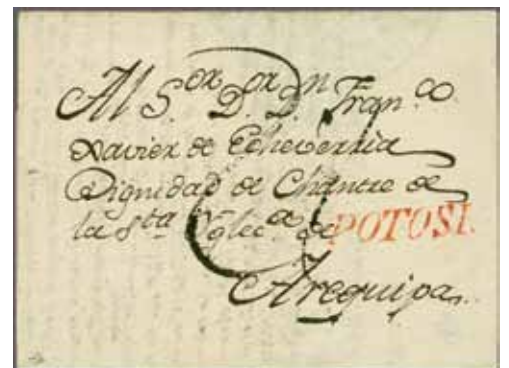 Al S.or D.or D.n Fran.co
Xavier de Echeverria
Dignidad de Chantre de
la S.ta Yglec.a de
POTOSI.
Arequipa.